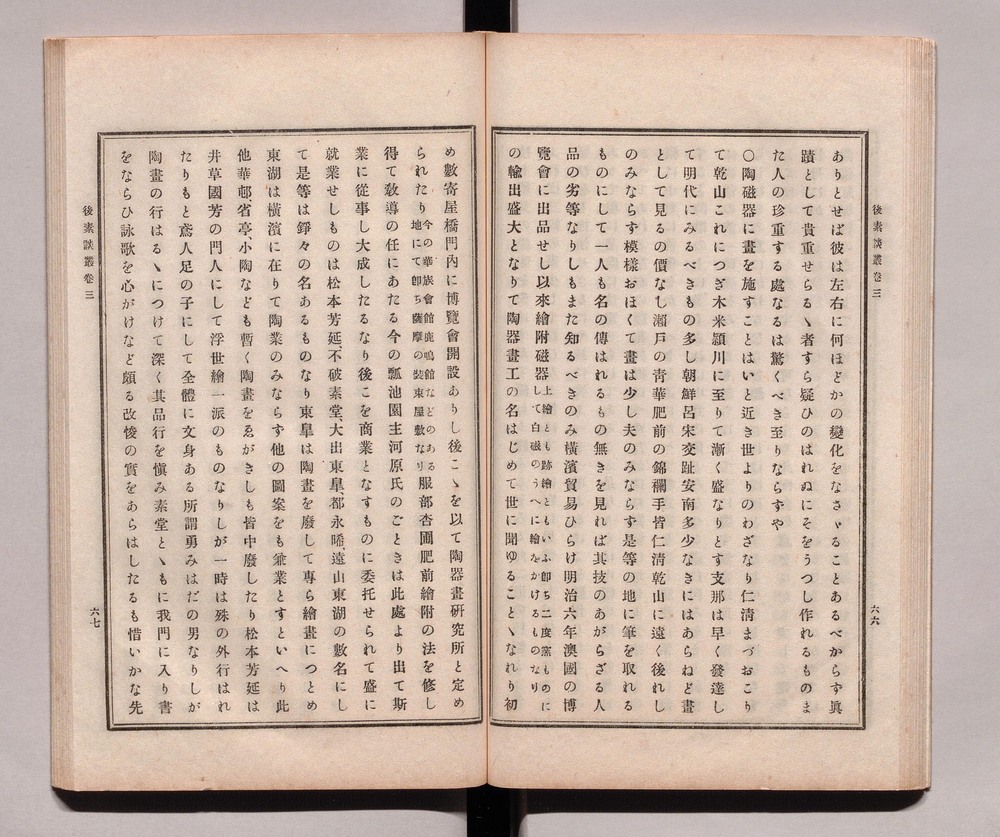 後素談叢卷三
六六
ありとせば彼は左右に何ほどかの變化をなさゞることあるべからず眞
蹟として貴重せらるゝ者すら疑ひのはれぬにそをうつし作れるものま
た人の珍重する處なるは驚くべき至りならずや
〇陶磁器に畫を施すことはいと近き世よりのわざなり仁清まづおこり
て乾山これにつぎ木米頴川に至りて漸く盛なりとす支那は早く發達し
て明代にみるべきもの多し朝鮮呂宋交趾安南多少なきにはあらねど畫
として見るの價なし瀬戸の青華肥前の錦襴手皆仁清乾山に遠く後れし
のみならず模樣おほくて畫は少し夫のみならず是等の地に筆を取れる
ものにして一人も名の傳はれるもの無きを見れば其技のあがらざる人
品の劣等なりしもまた知るべきのみ横濱貿易ひらけ明治六年澳國の博
覽會に出品せし以來繪附磁器上繪とも跡繪ともいふ卽ち二度窯ものに
して白磁のうへに繪をかけるものなり
の輸出盛大となりて陶器畫工の名はじめて世に聞ゆることゝなれり初
め數寄屋橋門內に博覽會開設ありし後こゝを以て陶器畫研究所と定め
られたり今の華族會館鹿鳴館などのある
地にて卽ち薩摩の裝束屋敷なり服部杏圃肥前繪附の法を修し
得て敎導の任にあたる今の瓢池園主河原氏のごときは此處より出て斯
業に從事し大成したるなり後こを商業となすものに委托せられて盛に
就業せしものは松本芳延、不破素堂、大出東皐、都永晞、遠山東湖の數名にし
て是等は錚々の名あるものなり東皐は陶畫を廢して專ら繪畫につとめ
東湖は横濱に在りて陶業のみならず他の圖案をも兼業とすといへり此
他華邨、省亭、小陶なども暫く陶畫をゑがきしも皆中廢したり松本芳延は
井草國芳の門人にして浮世繪一派のものなりしが一時は殊の外行はれ
たりもと鳶人足の子にして全體に文身ある所謂勇みはだの男なりしが
陶畫の行はるゝにつけて深く其品行を愼み素堂とゝもに我門に入り書
をならひ詠歌を心がけなど頗る改悛の實をあらはしたるも惜いかな先
後素談叢卷三
六七